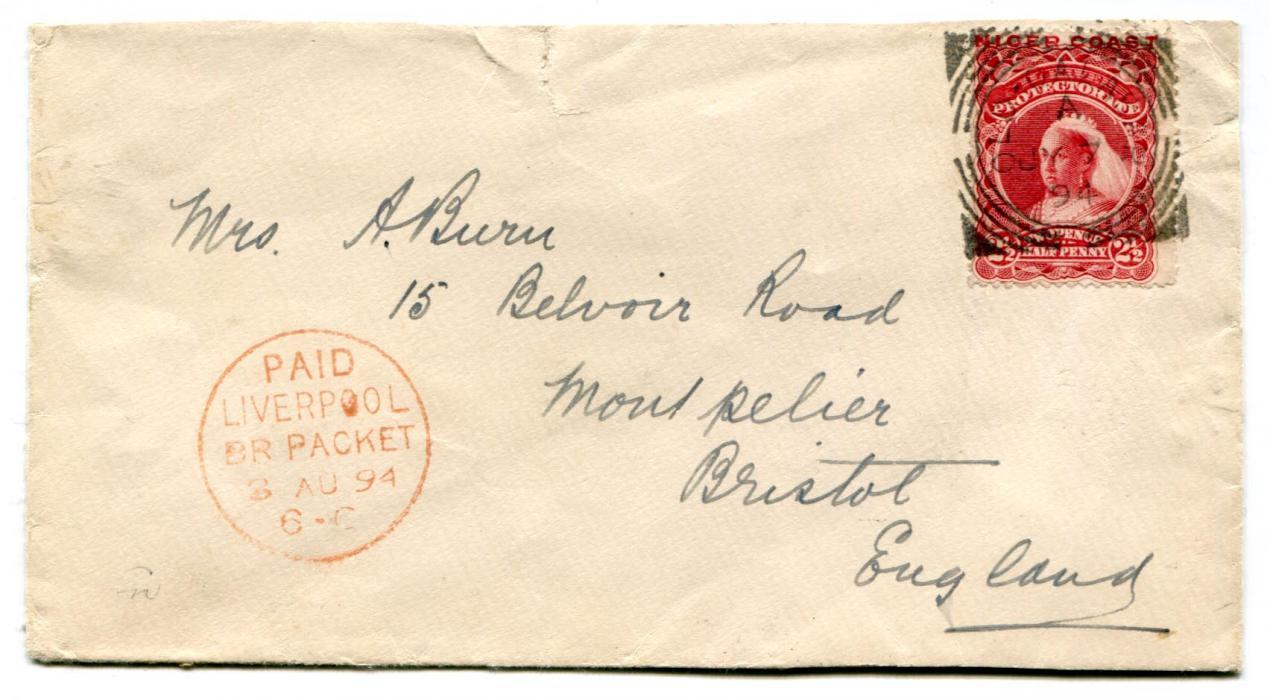 NIGER COAST
PROTECTORATE
A
JY 7
94
HALF PENNY
2½ 2½
Mrs. A. Burn
15 Belvoir Road
Montpelier
Bristol
England
PAID
LIVERPOOL
BR PACKET
3 AU 94
6 - C